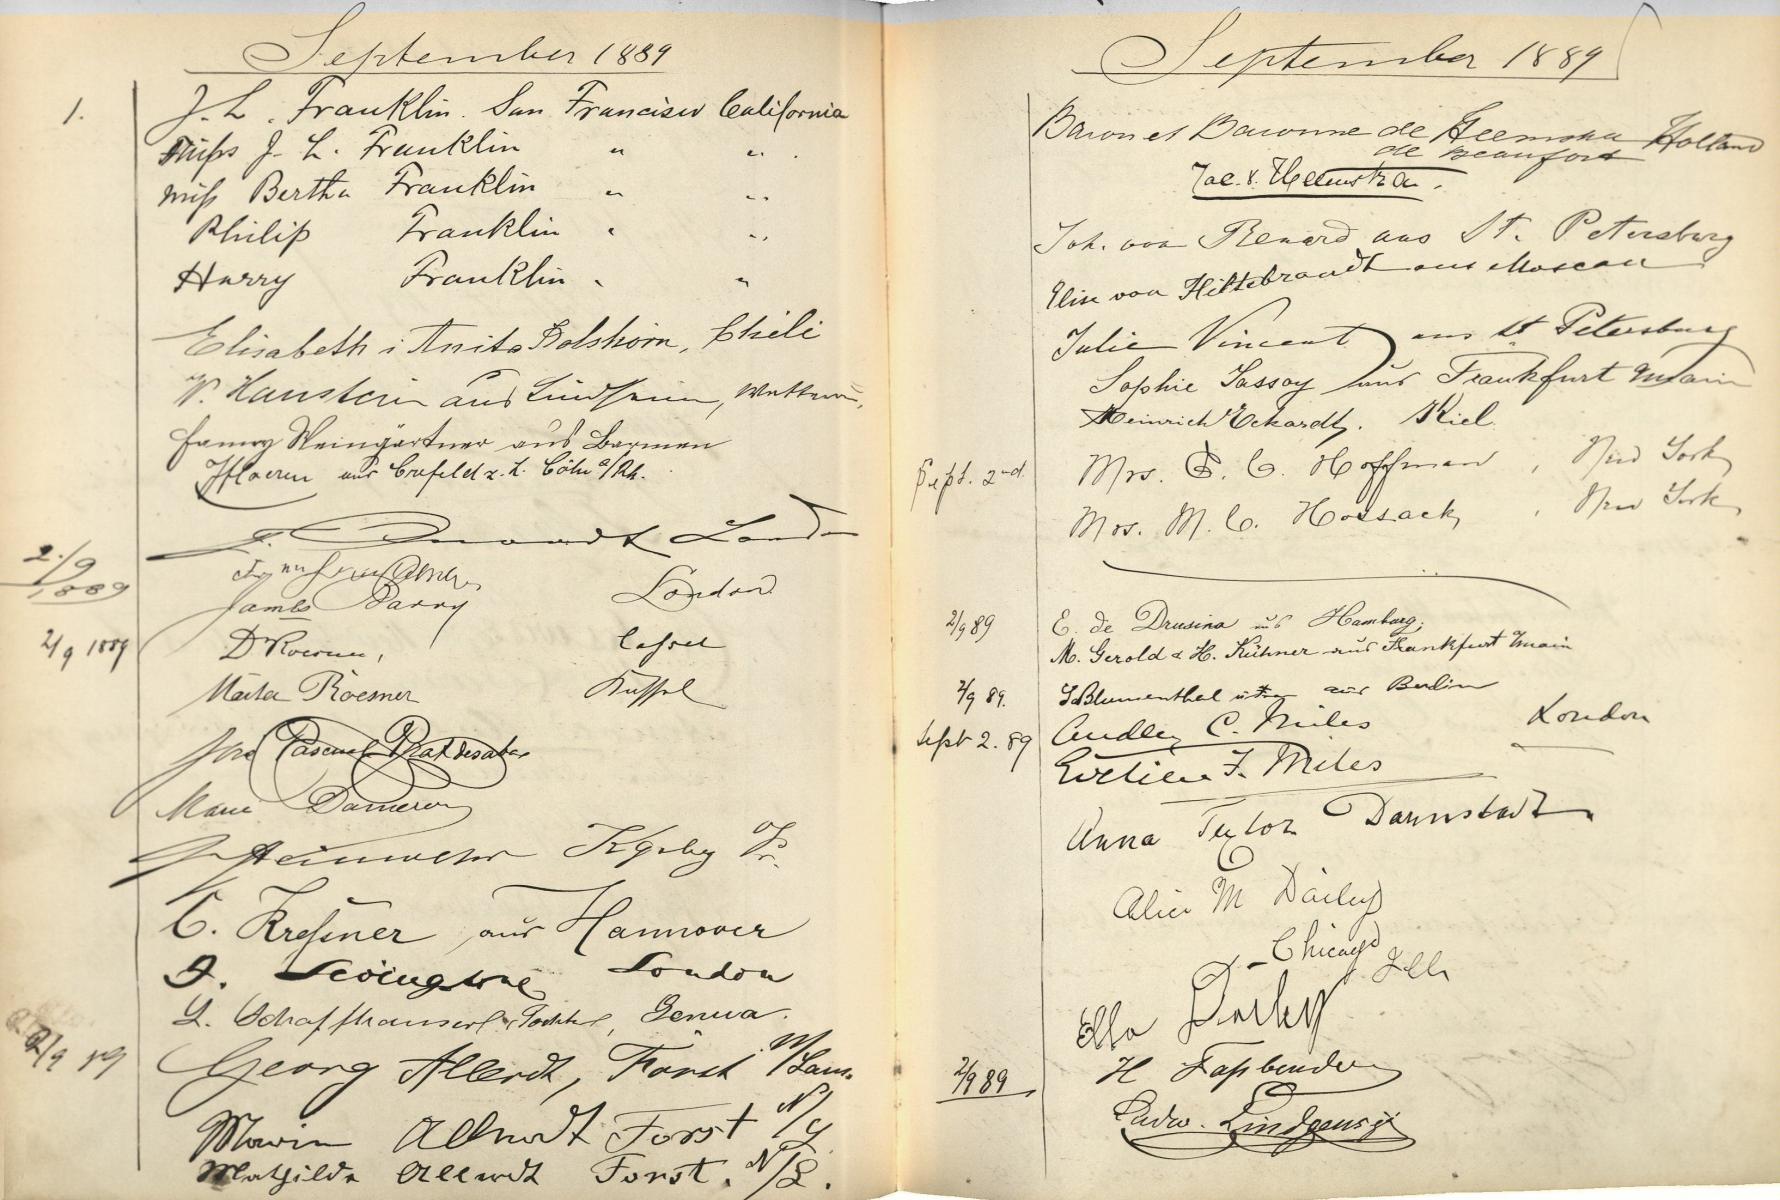 September 1889
1. J. L. Franklin. San Francisco California
J. L. Franklin " "
Miss Bertha Franklin " "
Philip Franklin " "
Harry Franklin " "
Elisabeth i Anita Bolshorn, Chili
W. Haustein aus Lindheim,
Fanny Weingärtner aus Barmen
aus Crefeld z. Z. Cöln a/Rh.
London
2./9 1889
James Barry London
2/9 1889 Dr Cassel
Roesner Kassel
José Pascual Pratdesaba
Marie Dameron
C. Kreßner aus Hannover
London
L. Genua.
2/9 89 Georg Allerdt, Forst N/Laus.
Allerdt Forst N/L
Mathilde Allerdt Forst. N/L.
September 1889
Baron et Baronne de Heemstra Holland
de Beaufort
v. Heemstra.
Joh. von Renard aus St. Petersburg
Elise von Hildebrandt aus Moscau
Julie Vincent aus St Petersburg
Sophie Sassoy aus Frankfurt Main
Heinrich Eckardt, Kiel
Sept. 2nd. Mrs. C. Hoffman, New York
Mrs. M. C. Hossack, New York
2/9 89 E. de Drusina aus Hamburg,
M. Gerold & H. Kühner aus Frankfurt Main
2/9 89. Blumenthal aus Berlin
Audley C. Miles London
Sept 2. 89 Eveline F. Miles
Anna Darmstadt
Alice M Dailey
Chicago
Ills
Ella Dailey
2/9 89 H Faßbender
Ludw. Lindgens